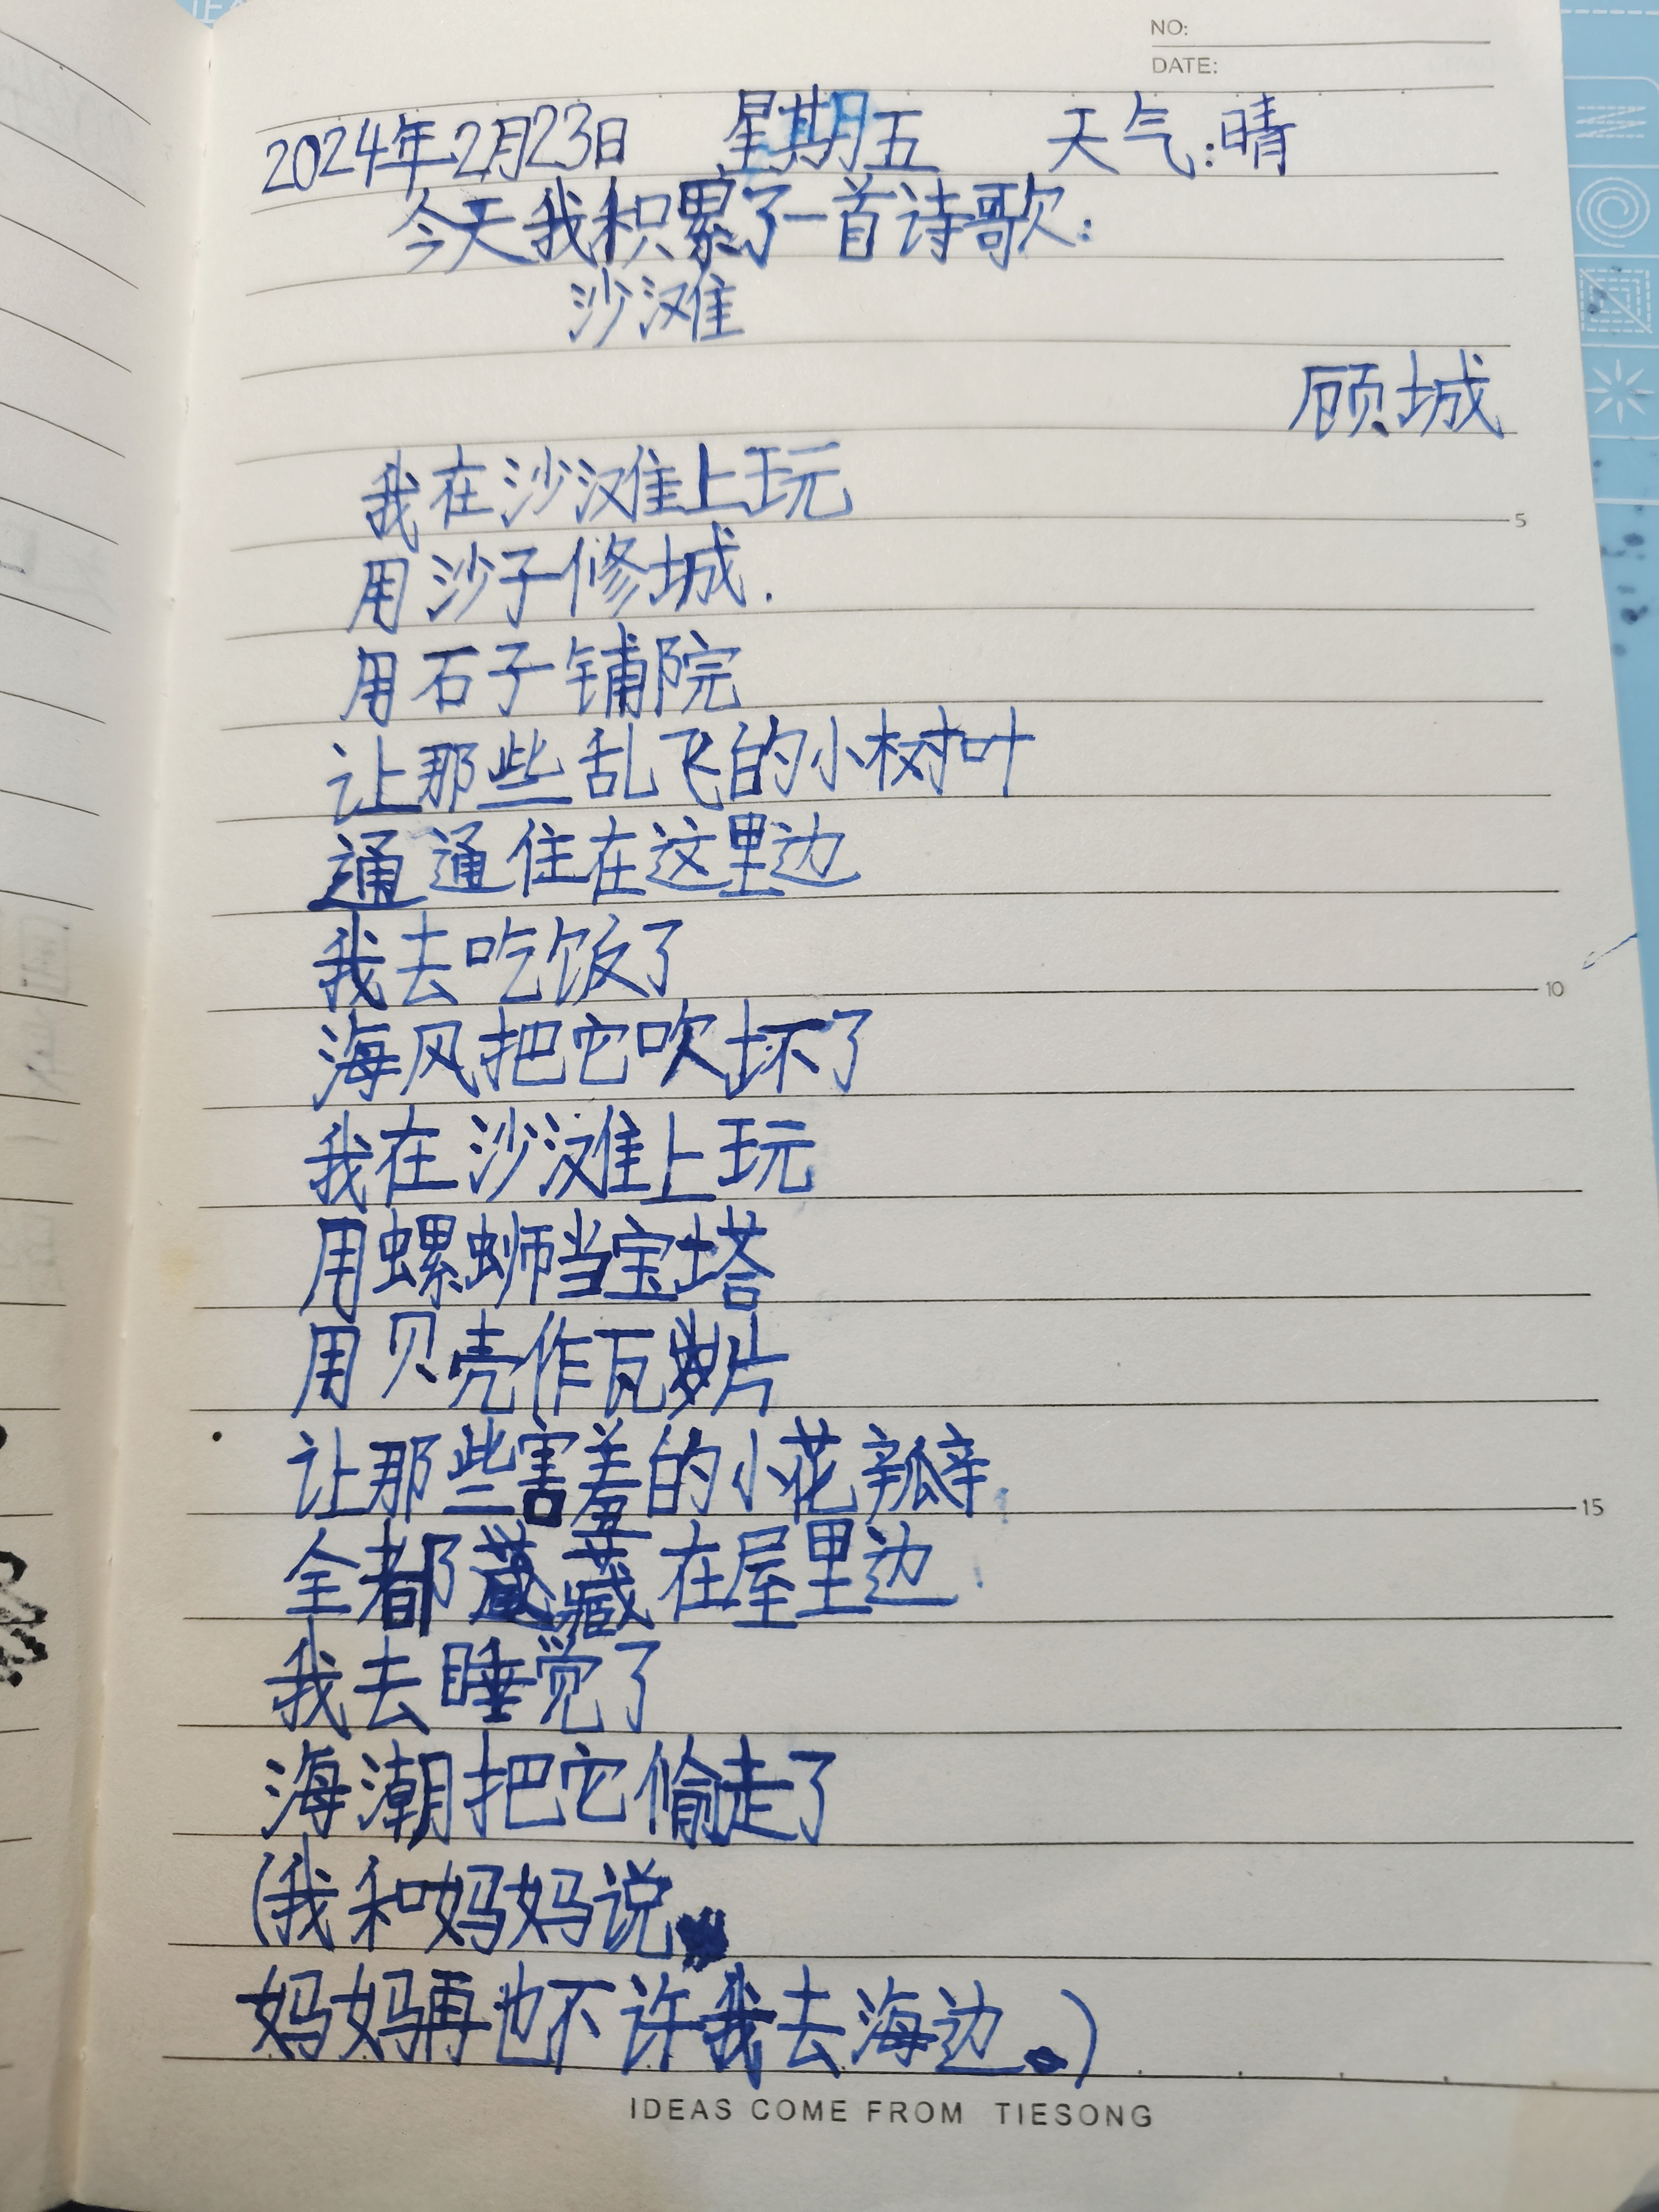 NO:
DATE:
2024年2月23日 星期五 天气:晴
今天我积累了一首诗歌:
沙滩
顾城
我在沙滩上玩
5
用沙子修城.
用石子铺院
让那些乱飞的小树叶
通通住在这里边
我去吃饭了
10
海风把它吹坏了
我在沙滩上玩
用螺蛳当宝塔
用贝壳作瓦片
让那些害羞的小花瓣
15
全都藏在屋里边
我去睡觉了
海潮把它偷走了
(我和妈妈说
妈妈再也不许我去海边。)
IDEAS COME FROM TIESONG